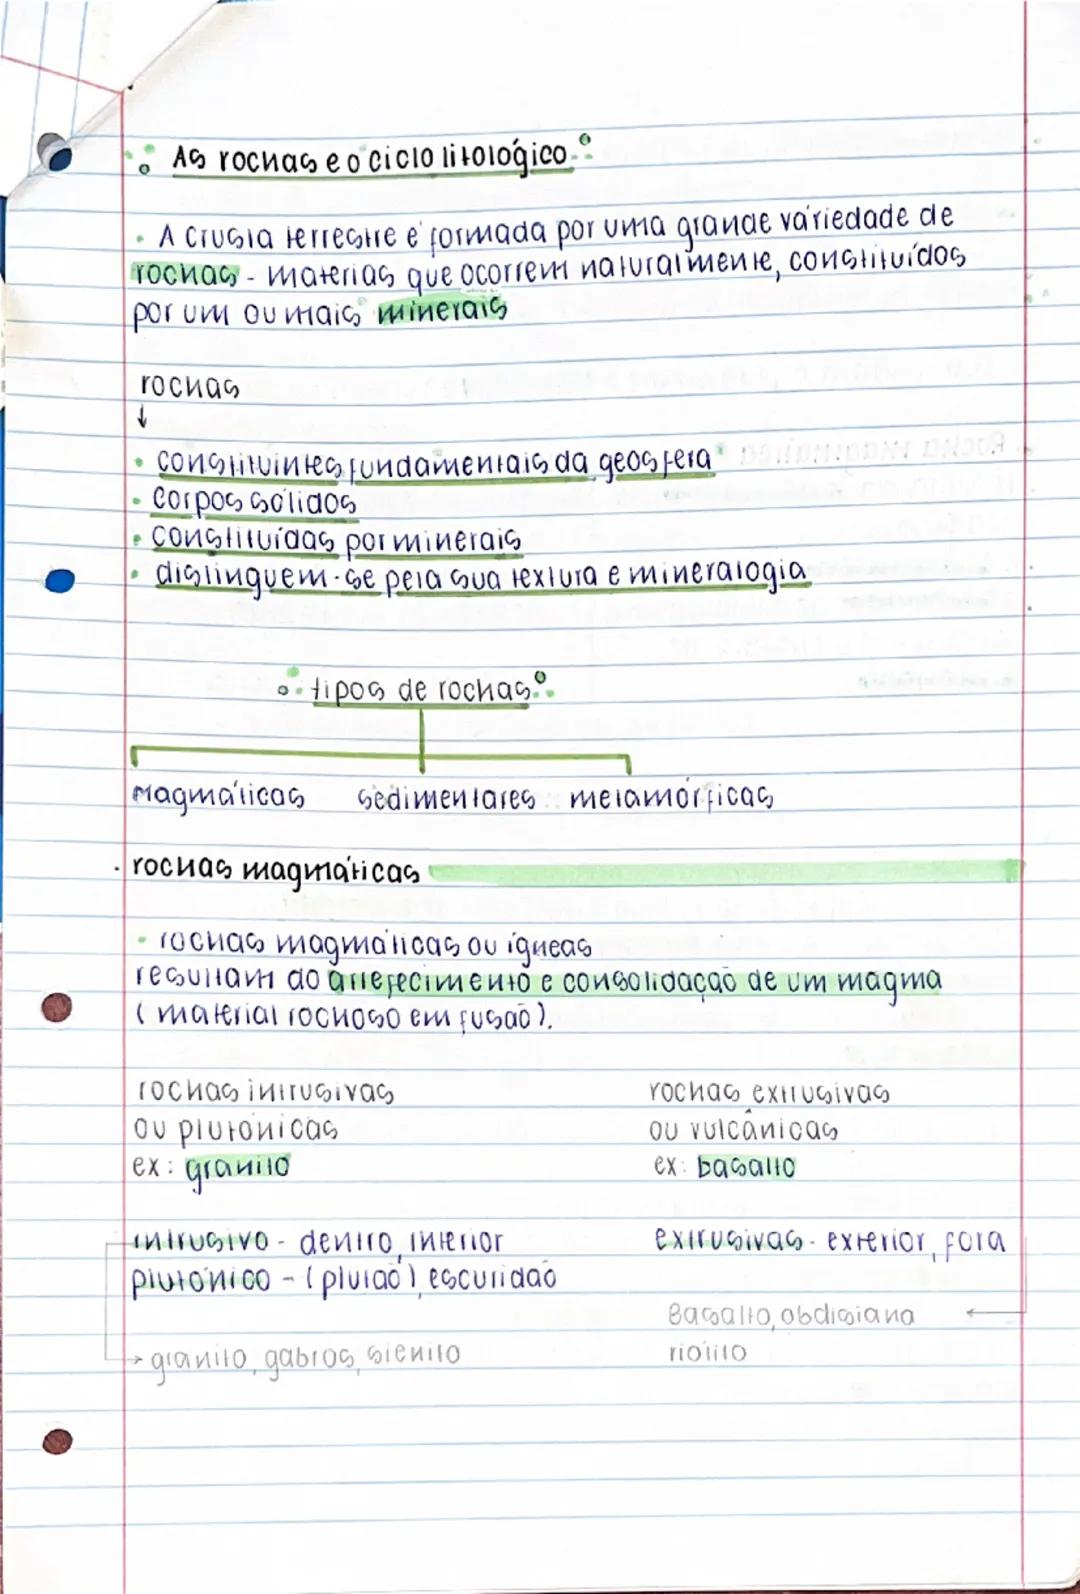 As rochas e o ciclo litológico
• A crusta terrestre é formada por uma grande variedade de
rochas - materias que ocorrem naturalmente, constituídos
por um ou mais minerais
rochas
↓
• constituintes fundamentais da geosfera
• corpos sólidos
• constituídas por minerais
• distinguem-se pela sua textura e mineralogia
tipos de rochas
Magmáticas sedimentares metamórficas
• rochas magmáticas
• rochas magmáticas ou ígneas
resultam do arrefecimento e consolidação de um magma
(material rochoso em fusão).
rochas intrusivas rochas extrusivas
ou plutónicas ou vulcânicas
ex: granito ex: basalto
intrusivo - dentro, interior extrusivas - exterior, fora
plutónico - (plutão), escuridão
Basalto, obdisiana
→ granito, gabros, sienito riolito